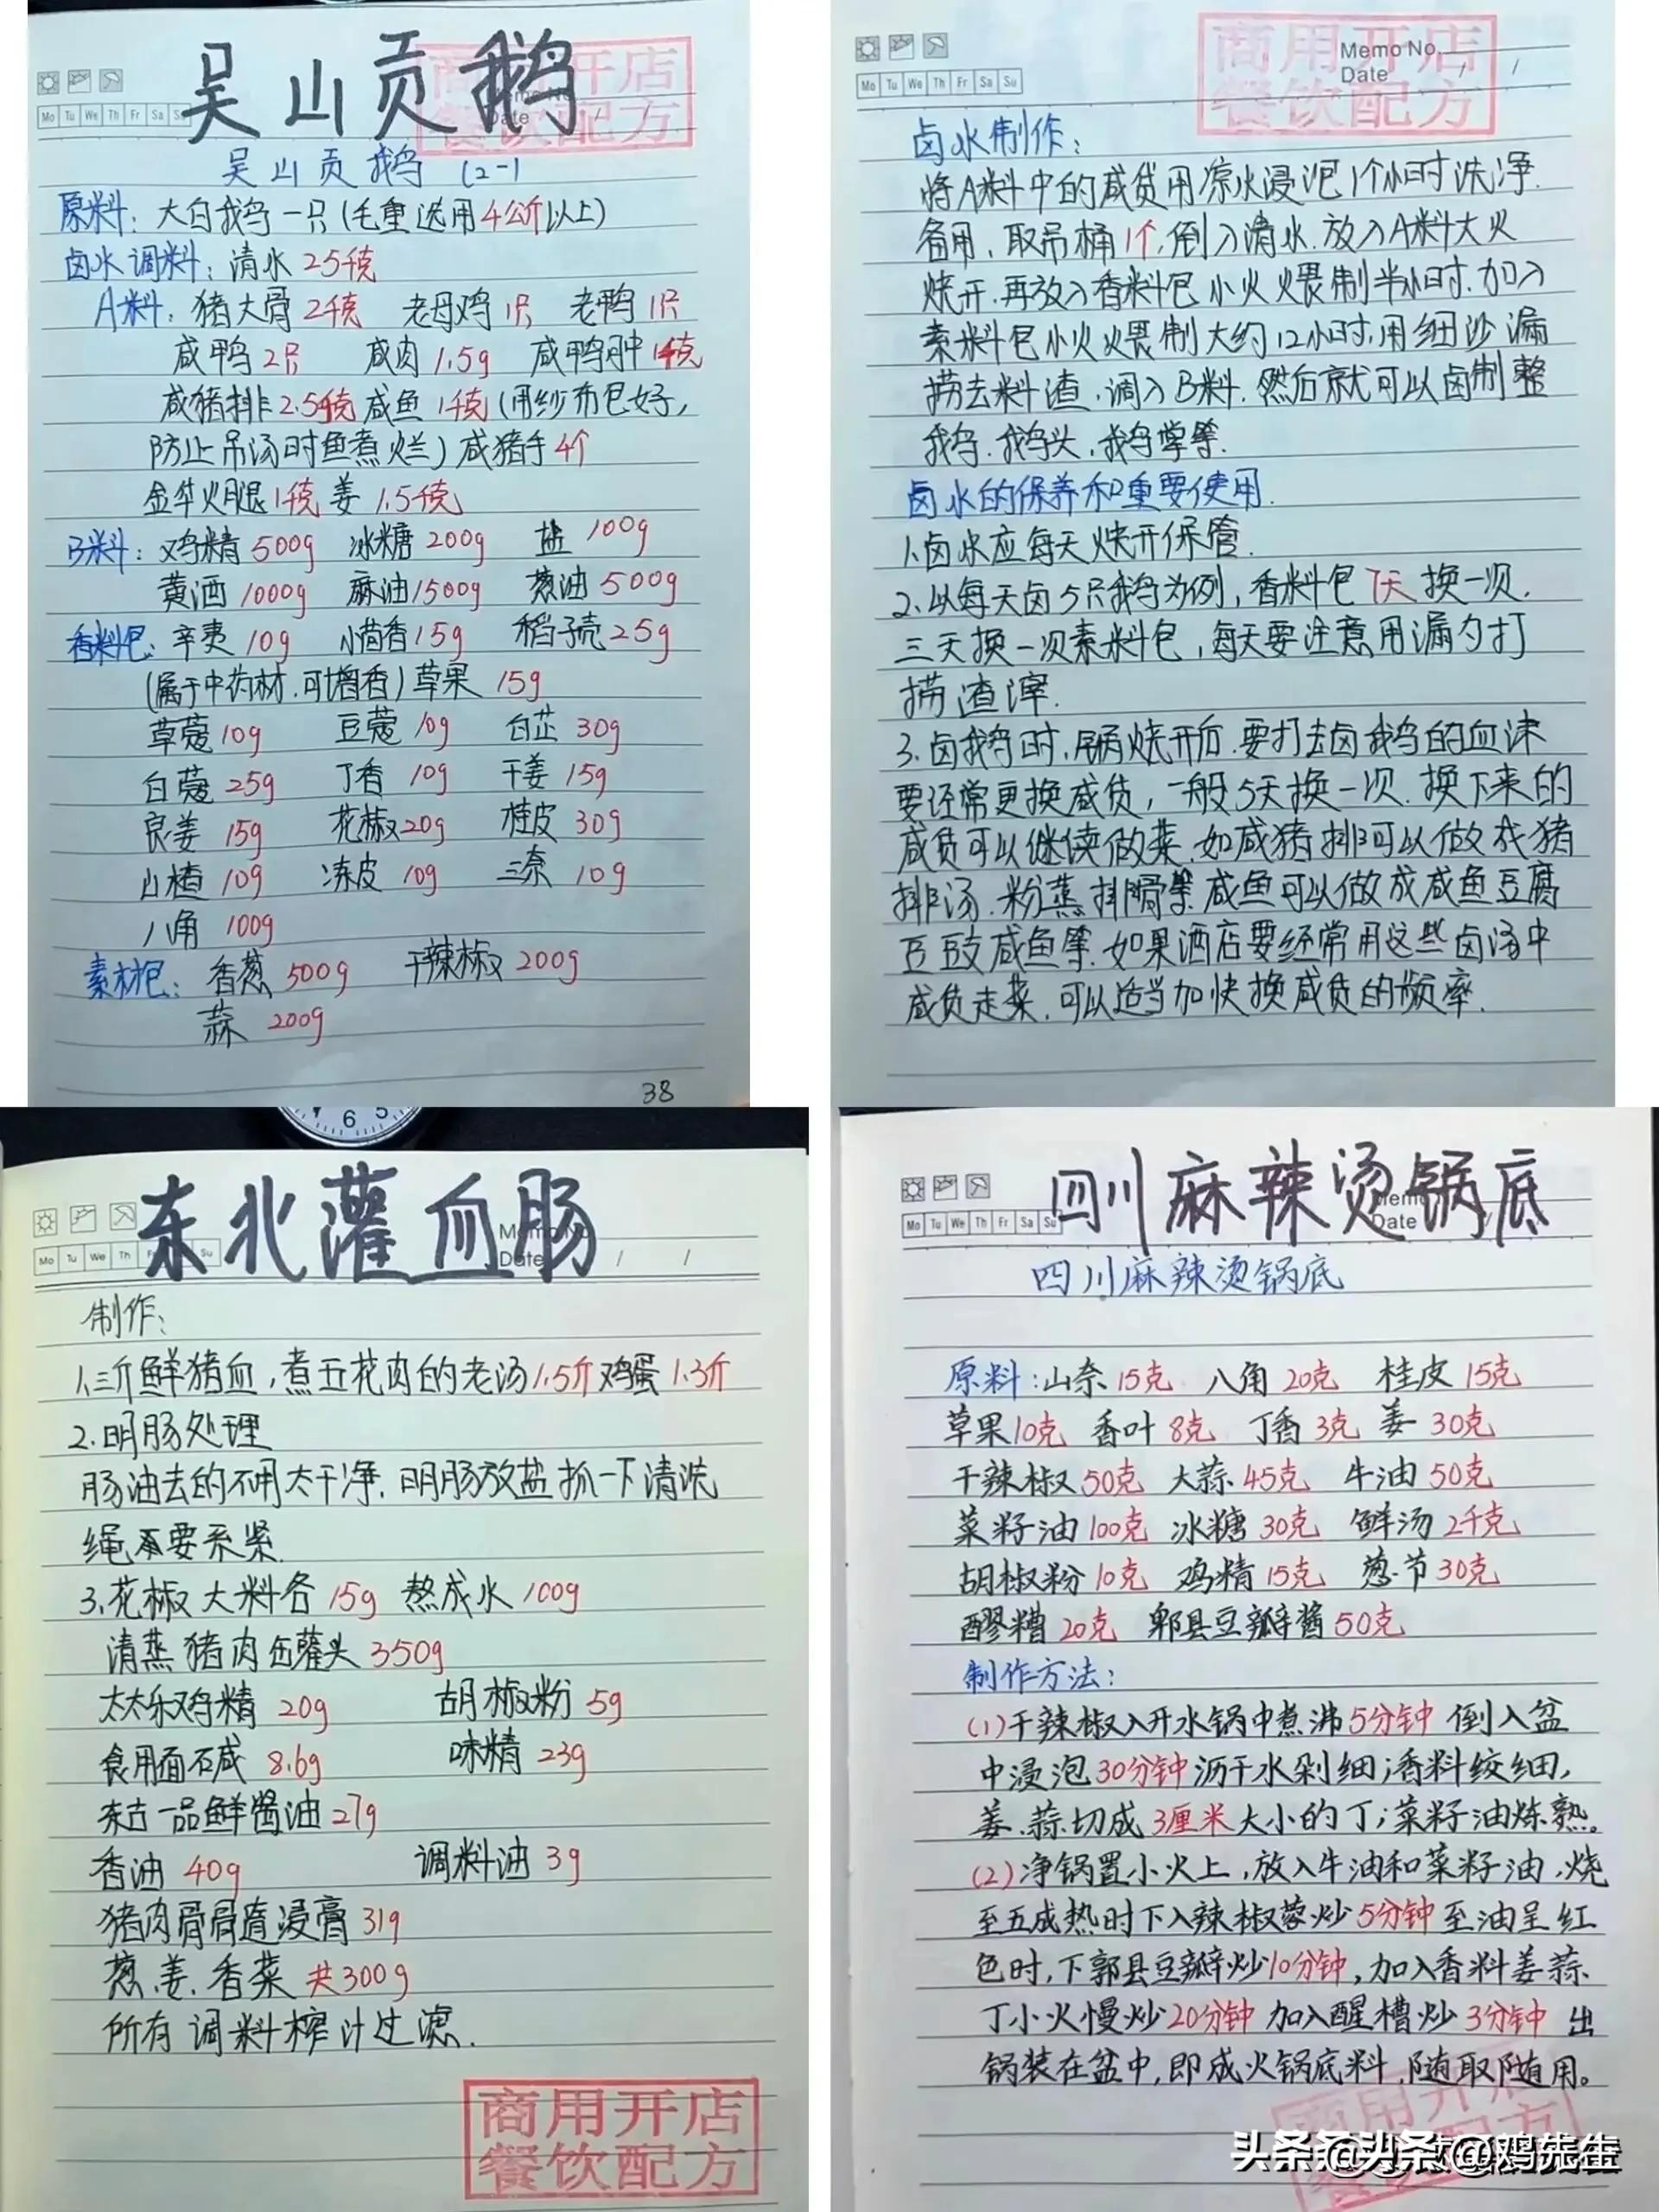 吴山贡鹅
商用开店
餐饮配方
Mo Tu We Th Fr Sa
吴山贡鹅 (2-1
原料: 大白鹅一只(毛重选用4公斤以上)
卤水调料: 清水 25千克
A料: 猪大骨 2千克 老母鸡 1只 老鸭 1只
咸鸭 2只 咸肉 1.5g 咸鸭肿 1千克
咸猪排 2.5千克 咸鱼 1千克 (用纱布包好,
防止吊汤时鱼煮烂) 咸猪手 4个
金华火腿 1千克 姜 1.5千克
B料: 鸡精 500g 冰糖 200g 盐 100g
黄酒 1000g 麻油 1500g 葱油 500g
香料包: 辛夷 10g 小茴香 15g 稻子壳 25g
(属于中药材.可增香) 草果 15g
草蔻 10g 豆蔻 10g 白芷 30g
白蔻 25g 丁香 10g 干姜 15g
良姜 15g 花椒 20g 桂皮 30g
山楂 10g 冻皮 10g 三奈 10g
八角 100g
素材包: 香葱 500g 干辣椒 200g
蒜 200g
38
Memo No.
Date / /
Mo Tu We Th Fr Sa Su
商用开店
餐饮配方
卤水制作:
将A料中的咸货用凉水浸泡1个小时洗净.
备用, 取吊桶1个, 倒入清水. 放入A料大火
烧开. 再放入香料包小火煨制半小时. 加入
素料包小火煨制大约12小时, 用细沙漏
捞去料渣. 调入B料. 然后就可以卤制整
鹅. 鹅头, 鹅掌等.
卤水的保养和重要使用.
1.卤水应每天烧开保管.
2.以每天卤5只鹅为例, 香料包7天换一次.
三天换一次素料包, 每天要注意用漏勺打
捞渣滓.
3.卤鹅时, 锅烧开后. 要打去卤鹅的血沫
要经常更换咸货, 一般5天换一次. 换下来的
咸货可以继续做菜. 如咸猪排可以做成猪
排汤. 粉蒸排骨等 咸鱼可以做成咸鱼豆腐
豆豉咸鱼等. 如果酒店要经常用这些卤汤中
咸货走菜. 可以适当加快换咸货的频率.
东北灌血肠
Date / /
制作:
1.三斤鲜猪血, 煮五花肉的老汤1.5斤 鸡蛋 1.3斤
2.明肠处理
肠油去的不用太干净. 明肠放盐抓一下清洗
绳不要系紧.
3.花椒 大料各 15g 熬成水 100g
清蒸猪肉缶罐头 350g
太太乐鸡精 20g 胡椒粉 5g
食用面碱 8.6g 味精 23g
东古一品鲜酱油 27g
香油 40g 调料油 3g
猪肉骨骨髓浸膏 31g
葱. 姜. 香菜 共300g
所有调料榨汁过滤.
商用开店
餐饮配方
四川麻辣烫锅底
Date
Mo Tu We Th Fr Sa Su
四川麻辣烫锅底
原料: 山奈 15克 八角 20克 桂皮 15克
草果 10克 香叶 8克 丁香 3克 姜 30克
干辣椒 50克 大蒜 45克 牛油 50克
菜籽油 100克 冰糖 30克 鲜汤 2千克
胡椒粉 10克 鸡精 15克 葱节 30克
醪糟 20克 郫县豆瓣酱 50克
制作方法:
(1)干辣椒入开水锅中煮沸5分钟 倒入盆
中浸泡30分钟沥干水剁细;香料绞细,
姜.蒜切成3厘米大小的丁;菜籽油炼熟。
(2)净锅置小火上, 放入牛油和菜籽油.烧
至五成热时下入辣椒蓉炒5分钟至油呈红
色时, 下郭县豆瓣炒10分钟, 加入香料姜蒜
丁小火慢炒20分钟 加入醒槽炒3分钟 出
锅装在盆中, 即成火锅底料, 随取随用。
商用开店
头条@头条@鸡先生